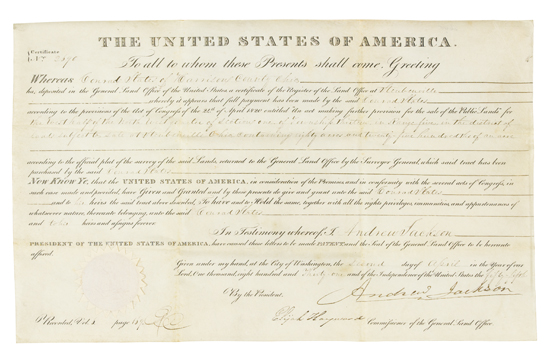 THE UNITED STATES OF AMERICA.
Certificate
To all to whom these Presents shall come, Greeting
Whereas Conrad of Harrison County Ohio
has deposited in the General Land Office of the United States a certificate of the Register of the Land Office at Steubenville
whereby it appears that full payment has been made by the said Conrad
according to the provisions of the Act of Congress of the 24th of April 1820 entitled "An act making further provision for the sale of the Public Lands" for
the West half of the North of
according to the official plat of the survey of the said Lands, returned to the General Land Office by the Surveyor General, which said tract has been
purchased by the said Conrad
Now Know Ye, that the UNITED STATES OF AMERICA, in consideration of the Premises and in conformity with the several acts of Congress, in
such case made and provided, have Given and Granted and by these presents do give and grant unto the said Conrad
and to his heirs the said tract above described, To have and to Hold the same, together with all the rights, privileges, immunities, and appurtenances of
whatsoever nature, thereunto belonging, unto the said Conrad
and to his heirs and assigns forever
In Testimony whereof, I, Andrew Jackson
PRESIDENT OF THE UNITED STATES OF AMERICA, have caused these letters to be made PATENT and the Seal of the General Land Office to be hereunto
affixed.
Given under my hand, at the City of Washington, the second day of April in the Year of our
Lord, One thousand, eight hundred and Thirty one and of the Independence of the United States the fifty fifth
By the President, Andrew Jackson
Recorded, Vol. page Elijah Hayward Commissioner of the General Land Office.